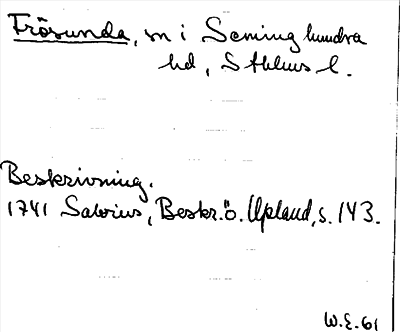 Frösunda, sn i Seminghundra
hd, Sthlms l.
Beskrivning.
1741 Salvius, Beskr. ö. Upland, s. 143.
W.E. 61